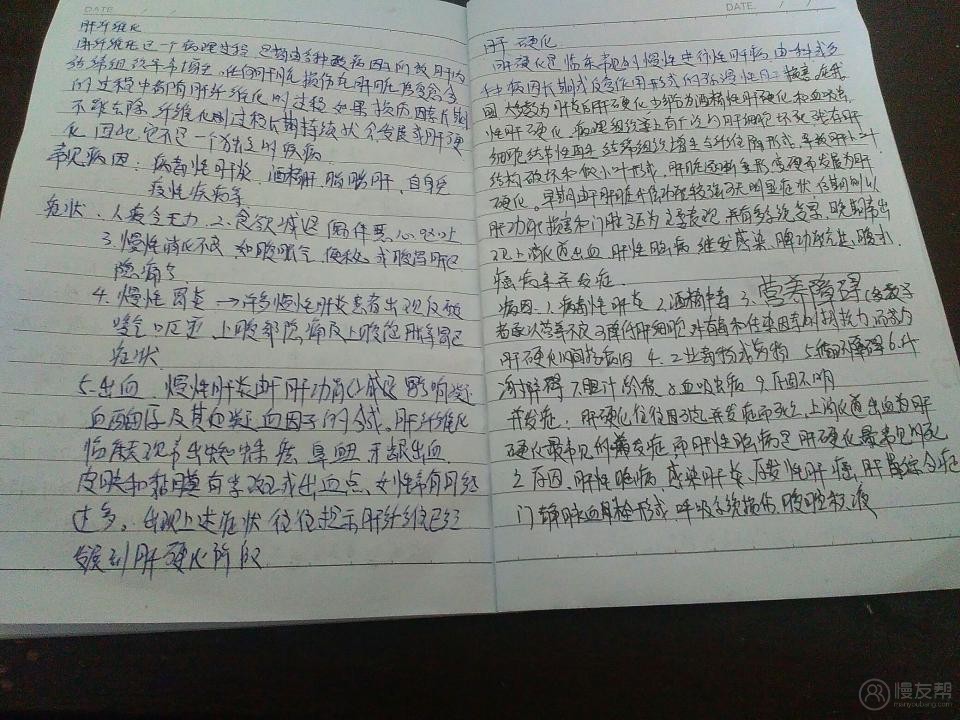 DATE
肝纤维化
肝纤维化是一个病理过程,是指由各种致病因子所致肝内
结缔组织异常增生,任何肝脏损伤在肝脏修复愈合
的过程中都有肝纤维化的过程,如果损伤因素长期
不能去除,纤维化的过程长期持续就会发展成肝硬
化,因此它不是一个独立的疾病
常见病因:病毒性肝炎、酒精肝、脂肪肝、自身免
疫性疾病等
症状:1.疲乏无力 2.食欲减退 偶伴恶心呕吐
3.慢性消化不良 如腹胀气 便秘 或腹泻肝区
隐痛等
4.慢性胃炎→许多慢性肝炎患者出现反酸
嗳气 呃逆 上腹部隐痛及上腹饱胀等胃区
症状
5.出血 慢性肝炎由于肝功能减退影响凝
血酶原及其他凝血因子的合成,肝纤维化
临床表现常出现蜘蛛痣 鼻衄 牙龈出血
皮肤和黏膜有紫斑或出血点,女性常有月经
过多。出现上述症状往往提示肝纤维化已经
发展到肝硬化阶段
DATE
肝硬化
肝硬化是临床常见的慢性进行性肝病,由一种或多
种病因长期或反复作用形成的弥漫性肝损害,在我
国大多数为肝炎后肝硬化,少部分为酒精性肝硬化和血吸虫
性肝硬化。病理组织学上有广泛的肝细胞坏死 残存肝
细胞结节性再生 结缔组织增生与纤维隔形成,导致肝小叶
结构破坏和假小叶形成,肝脏逐渐变形,变硬而发展为肝
硬化。早期由于肝脏代偿功能较强可无明显症状 后期则以
肝功能损害和门脉高压为主要表现,并有多系统受累,晚期常出
现上消化道出血 肝性脑病 继发感染 脾功能亢进、腹水
癌变等并发症
病因:1.病毒性肝炎 2.酒精中毒 3.营养障碍(多数学
者承认营养不良可降低肝细胞对有毒和传染因素的抵抗力,而成为
肝硬化的间接病因 4.工业毒物或药物 5.循环障碍 6.代
谢障碍 7.胆汁淤积 8.血吸虫病 9.原因不明
并发症:肝硬化往往因引起并发症而死亡,上消化道出血为肝
硬化最常见的并发症 而肝性脑病是肝硬化最常见的死
亡原因、肝性脑病 感染 原发性肝癌,肝肾综合征
门静脉血栓形成,呼吸系统损伤,腹腔积液
慢友帮
manyoubang.com